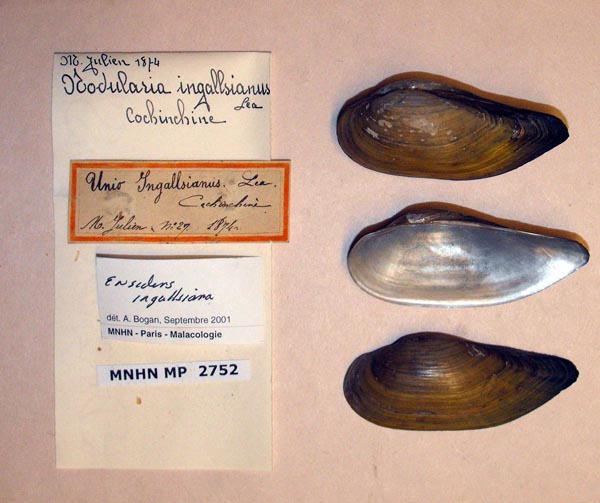 M. Julien 1874
Nodularia ingallsianus
Lea
Cochinchine
Unio Ingallsianus. Lea.
Cochinchine
M. Julien, N°27. 1874.
Ensidens
ingallsiana
dét. A. Bogan, Septembre 2001
MNHN - Paris - Malacologie
MNHN MP 2752